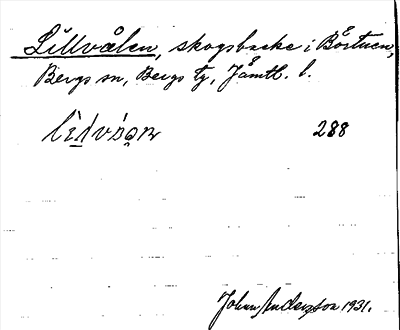 Lillvålen, skogsbacke i Börtnen,
Bergs sn, Bergs tg, Jämtl. l.
288
Johan Anderzon 1931.